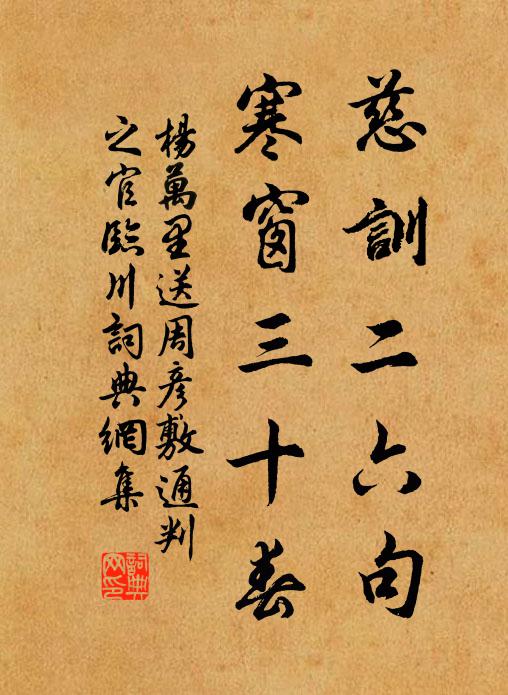 慈訓二六句
寒窗三十春
楊萬里送周彥敷通判
之官臨川詞典網集
詞典
网印